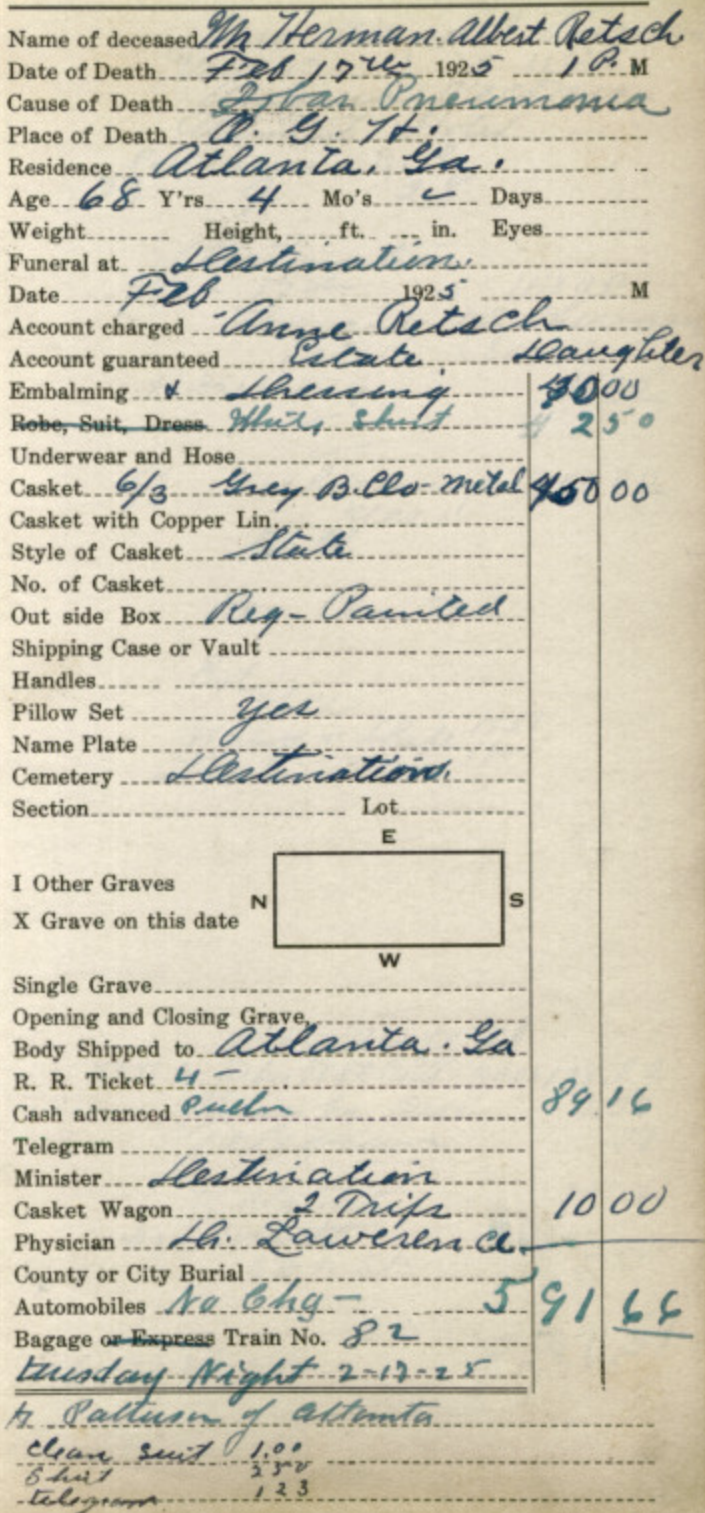 Name of deceased Mr Herman Albert Retsch
Date of Death Feb 17th 1925 1 P. M
Cause of Death Lobar Pneumonia
Place of Death O. G. H.
Residence Atlanta, Ga.
Age 68 Y'rs 4 Mo's Days
Weight Height, ft. in. Eyes
Funeral at Destination.
Date Feb 1925 M
Account charged Anne Retsch
Account guaranteed Estate Daughter
Embalming & Dressing 00
Robe, Suit, Dress White Shirt 2 50
Underwear and Hose
Casket 6/3 Grey B. Clo- Metal 450 00
Casket with Copper Lin.
Style of Casket State
No. of Casket
Out side Box Reg- Painted
Shipping Case or Vault
Handles
Pillow Set yes
Name Plate
Cemetery Destination.
Section Lot
E
I Other Graves
N S
X Grave on this date
W
Single Grave
Opening and Closing Grave,
Body Shipped to Atlanta. Ga
R. R. Ticket 4 -
Cash advanced 89 16
Telegram
Minister Destination
Casket Wagon 2 Trips 10 00
Physician Dr. Lawerence
County or City Burial
Automobiles No Chg- 591 66
Bagage or Express Train No. 82
tuesday Night 2-17-25
Patterson of Atlanta
Clean Suit 1.00
Shirt 2 50
telegram 1 23